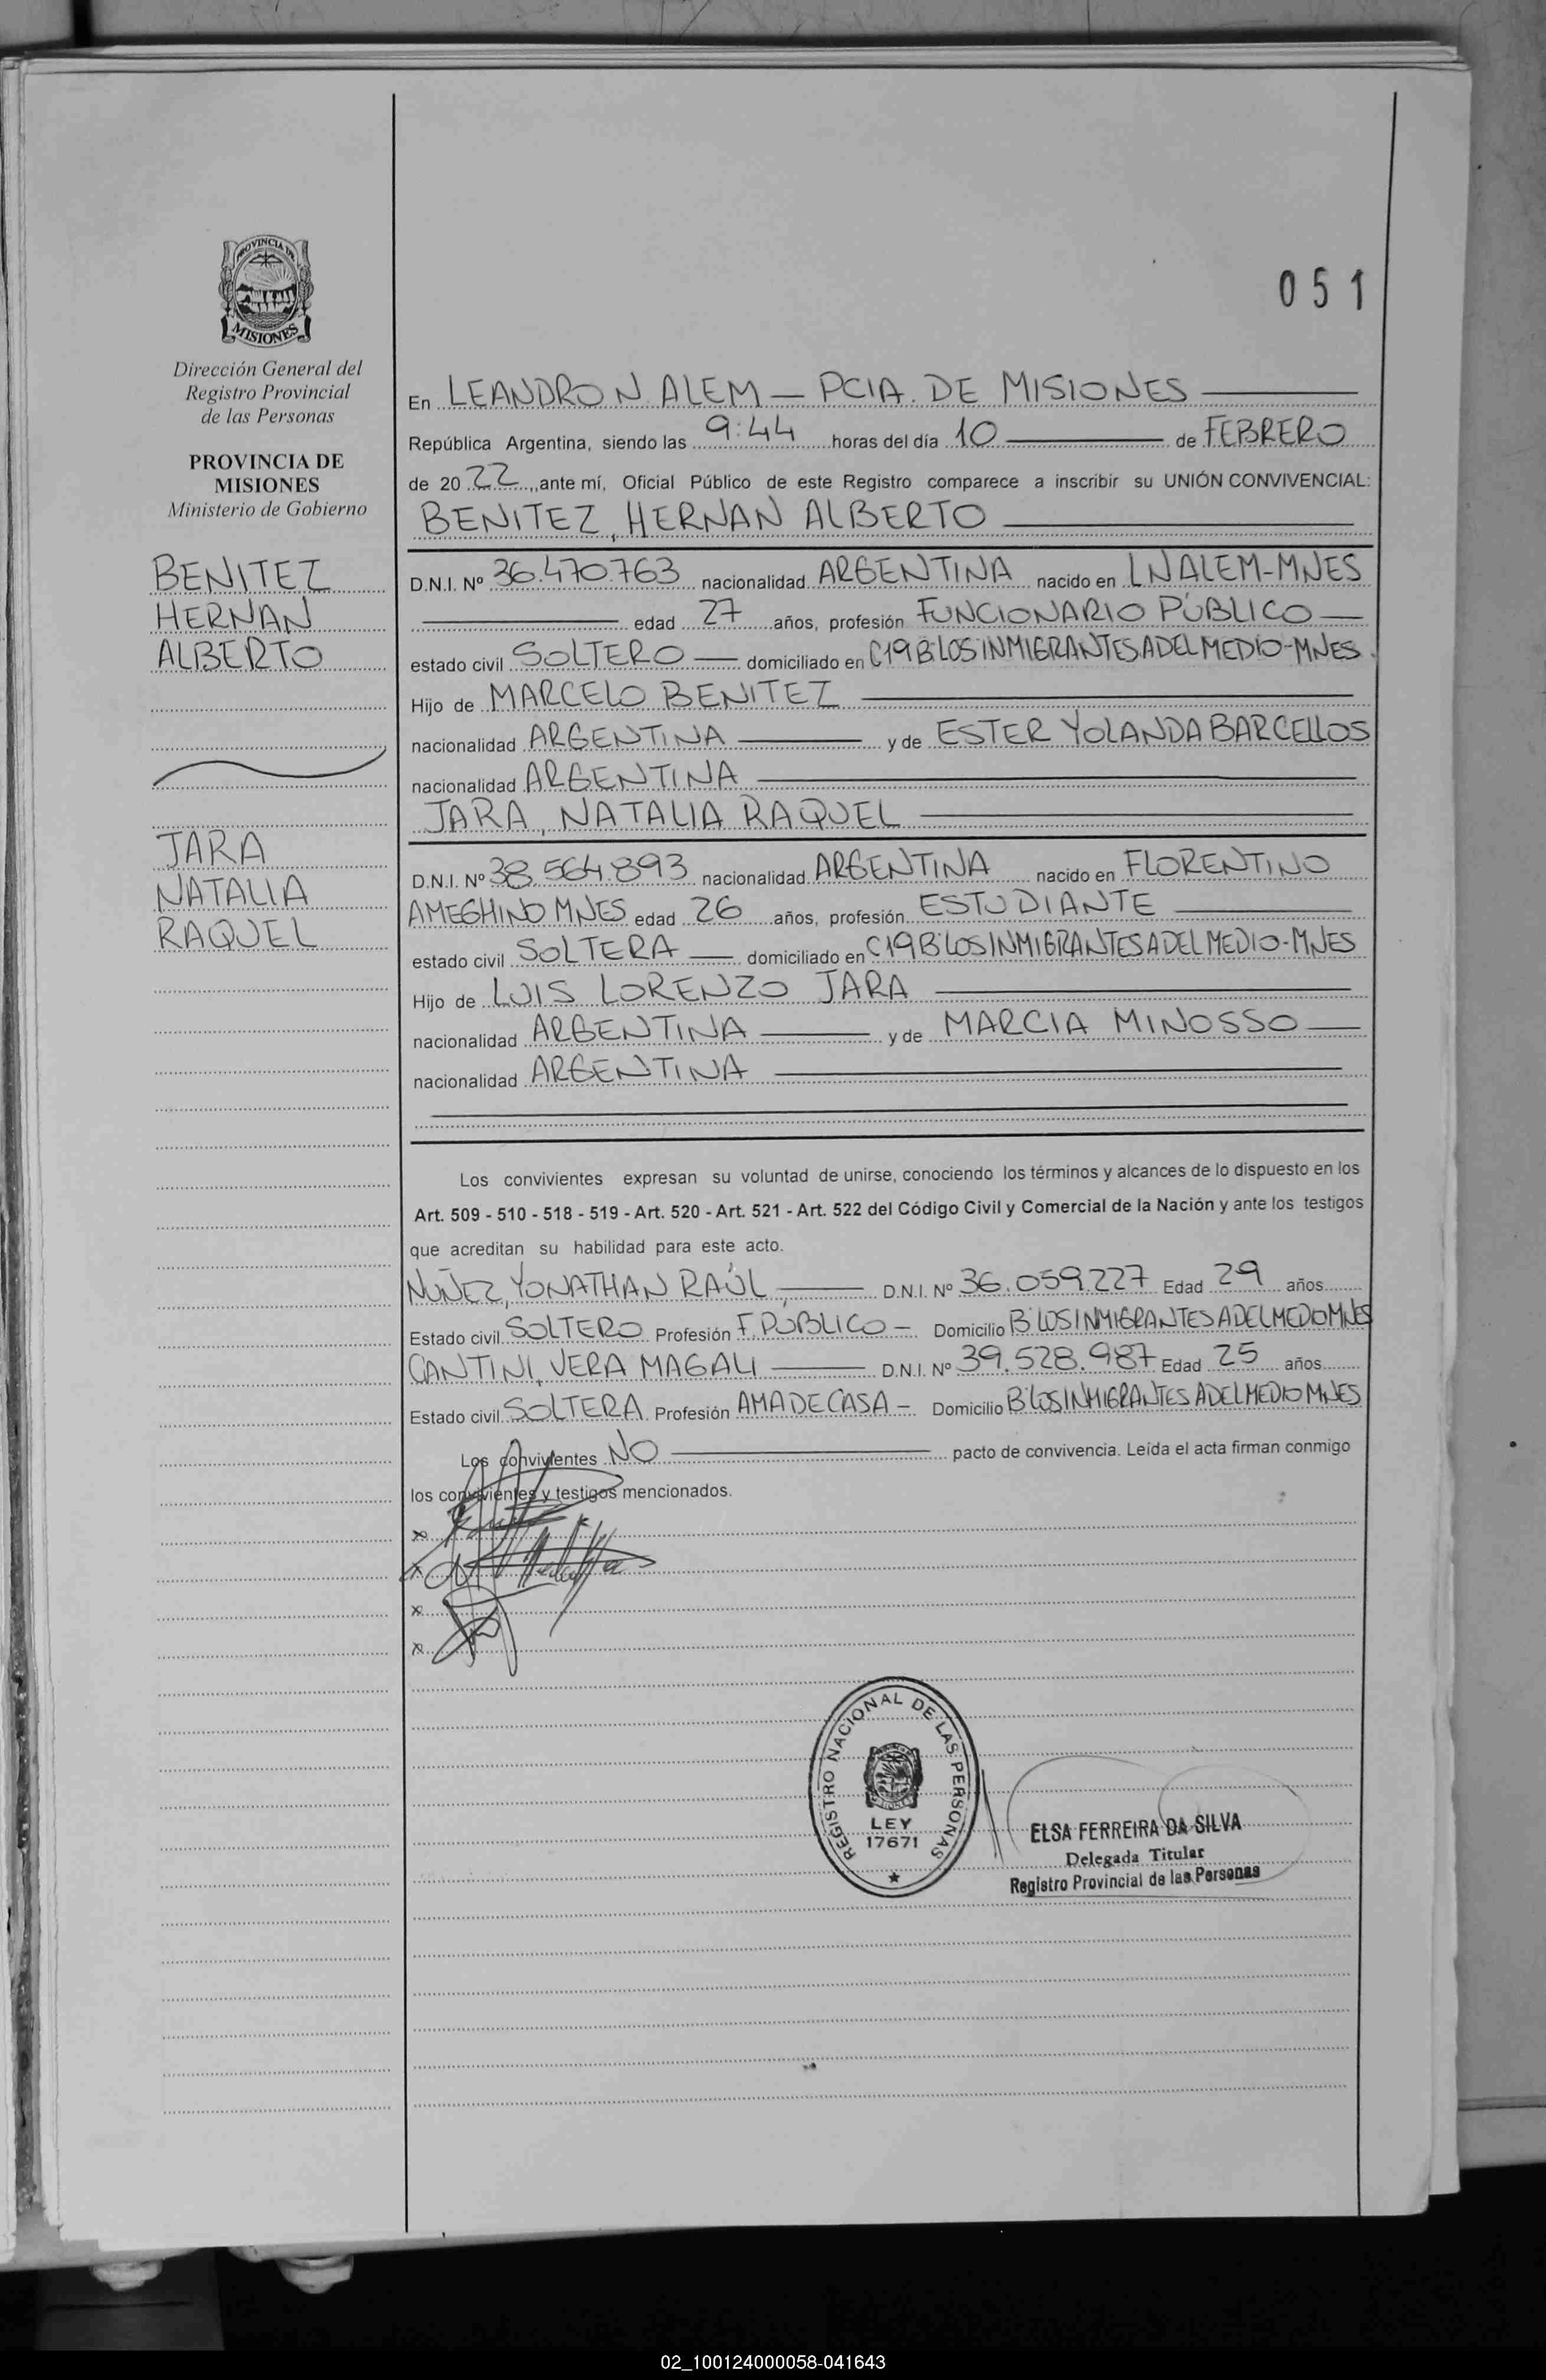 051
PROVINCIA DE
MISIONES
Dirección General del
Registro Provincial
de las Personas
PROVINCIA DE
MISIONES
Ministerio de Gobierno
BENITEZ
HERNAN
ALBERTO
JARA
NATALIA
RAQUEL
En LEANDRO N. ALEM - PCIA. DE MISIONES
República Argentina, siendo las 9:44 horas del día 10 de FEBRERO
de 20 22, ante mí, Oficial Público de este Registro comparece a inscribir su UNIÓN CONVIVENCIAL:
BENITEZ, HERNAN ALBERTO
D.N.I. Nº 36.470.763 nacionalidad ARGENTINA nacido en LNALEM-MNES
edad 27 años, profesión FUNCIONARIO PÚBLICO
estado civil SOLTERO domiciliado en C19 B:LOS INMIGRANTES A DEL MEDIO-MNES
Hijo de MARCELO BENITEZ
nacionalidad ARGENTINA y de ESTER YOLANDA BARCELLOS
nacionalidad ARGENTINA
JARA, NATALIA RAQUEL
D.N.I. Nº 38.564.893 nacionalidad ARGENTINA nacido en FLORENTINO
AMEGHINO MNES edad 26 años, profesión ESTUDIANTE
estado civil SOLTERA domiciliado en C19 B LOS INMIGRANTES A DEL MEDIO-MNES
Hijo de LUIS LORENZO JARA
nacionalidad ARGENTINA y de MARCIA MINOSSO
nacionalidad ARGENTINA
Los convivientes expresan su voluntad de unirse, conociendo los términos y alcances de lo dispuesto en los
Art. 509 - 510 - 518 - 519 - Art. 520 - Art. 521 - Art. 522 del Código Civil y Comercial de la Nación y ante los testigos
que acreditan su habilidad para este acto.
NUÑEZ, YONATHAN RAÚL D.N.I. Nº 36.059.227 Edad 29 años
Estado civil SOLTERO Profesión F. PÚBLICO - Domicilio B LOS INMIGRANTES A DEL MEDIO MNES
CANTINI, VERA MAGALI D.N.I. Nº 39.528.987 Edad 25 años
Estado civil SOLTERA Profesión AMA DE CASA - Domicilio B LOS INMIGRANTES A DEL MEDIO MNES
Los convivientes NO pacto de convivencia. Leída el acta firman conmigo
los convivientes y testigos mencionados.
x
x
x
x
REGISTRO NACIONAL DE LAS PERSONAS
LEY
17671
ELSA FERREIRA DA SILVA
Delegada Titular
Registro Provincial de las Personas
02_100124000058-041643